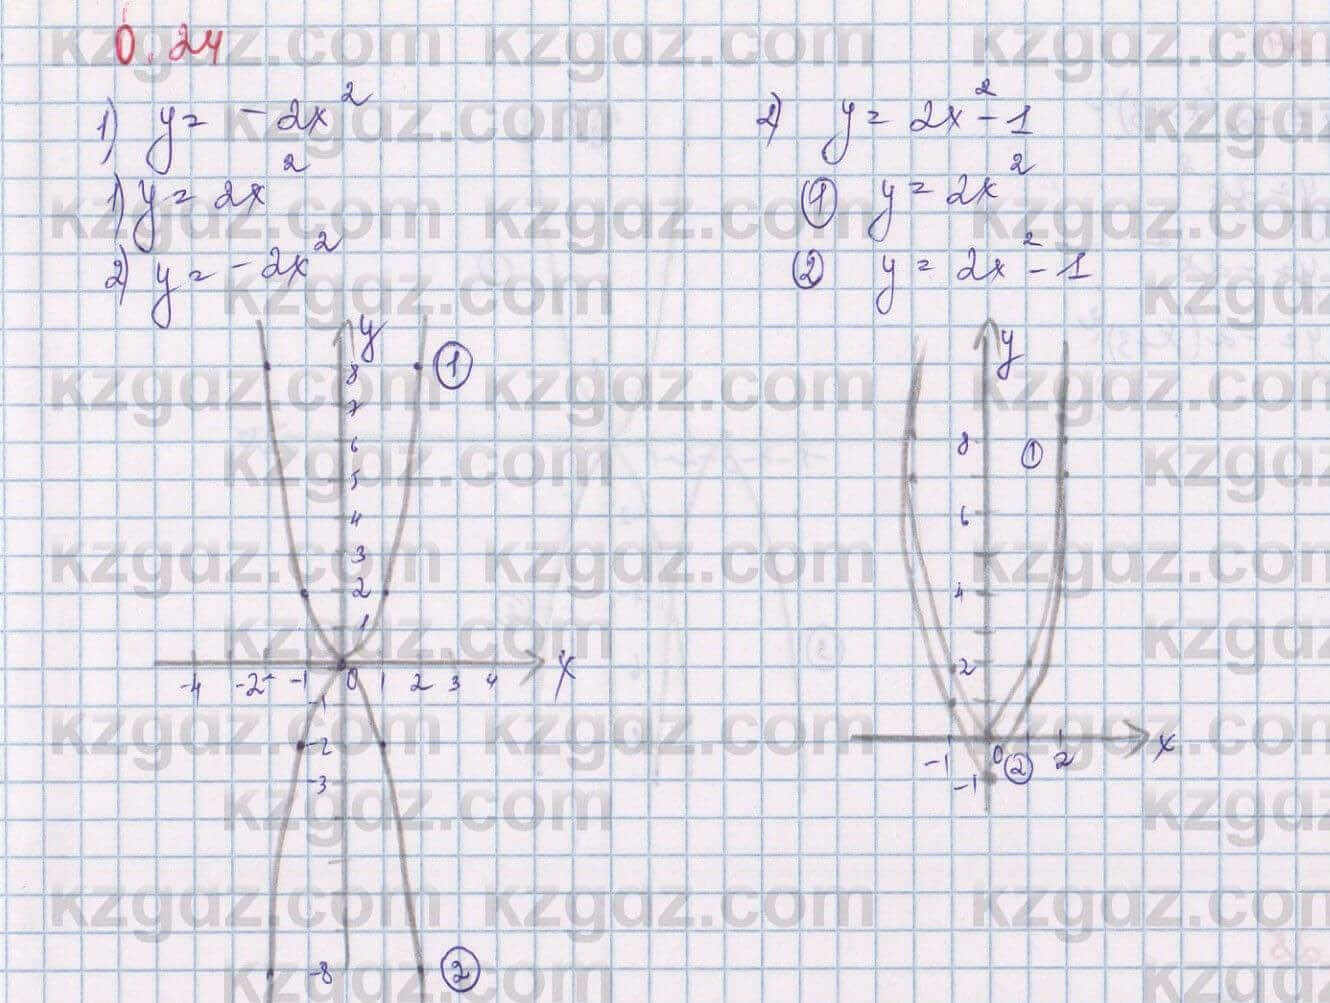 0.24
1) y = -2x²
1) y = 2x²
2) y = -2x²
2) y = 2x² - 1
① y = 2x²
② y = 2x² - 1
y
①
8
7
6
5
4
3
2
1
-4 -2 -1 0 1 2 3 4 x
-1
-2
-3
-8
②
y
8
①
6
4
2
-1 0 ② 2 x
-1
kzgdz.com